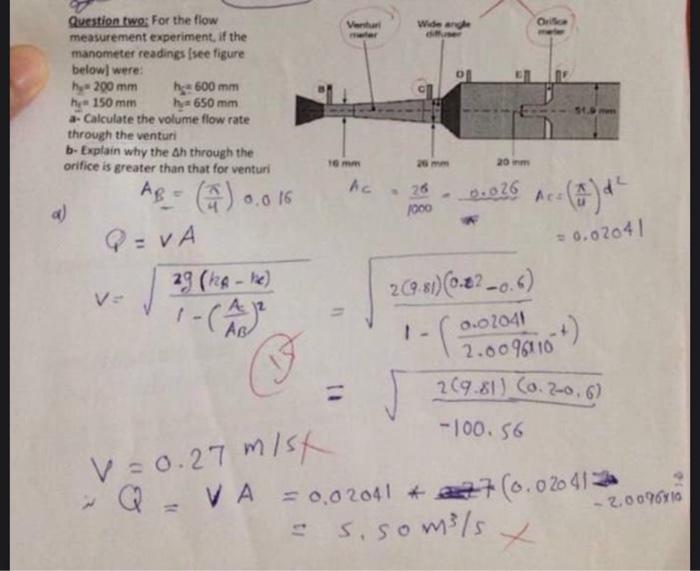 Question two: For the flow
measurement experiment, if the
manometer readings [see figure
below] were:
h_B= 200 mm h_C= 600 mm
h_E= 150 mm h_F= 650 mm
a- Calculate the volume flow rate
through the venturi
b- Explain why the Δh through the
orifice is greater than that for venturi
Venturi
meter
Wide angle
diffuser
Orifice
meter
B
C
D
E
F
51.9 mm
16 mm
26 mm
20 mm
a)
A_B = (π/4) 0.016
A_C = 26/1000 = 0.026 A_C = (π/4) d²
= 0.02041
Q = V A
V = √(2g (h_B - h_C) / 1 - (A_C/A_B)²) = √(2(9.81)(0.2 - 0.6) / 1 - (0.02041 / 2.0096x10⁻⁴))
15
= √(2(9.81)(0.2-0.6) / -100.56)
V = 0.27 m/s
Q = V A = 0.02041 * (0.02041 - 2.0096x10
= 5.50 m³/s